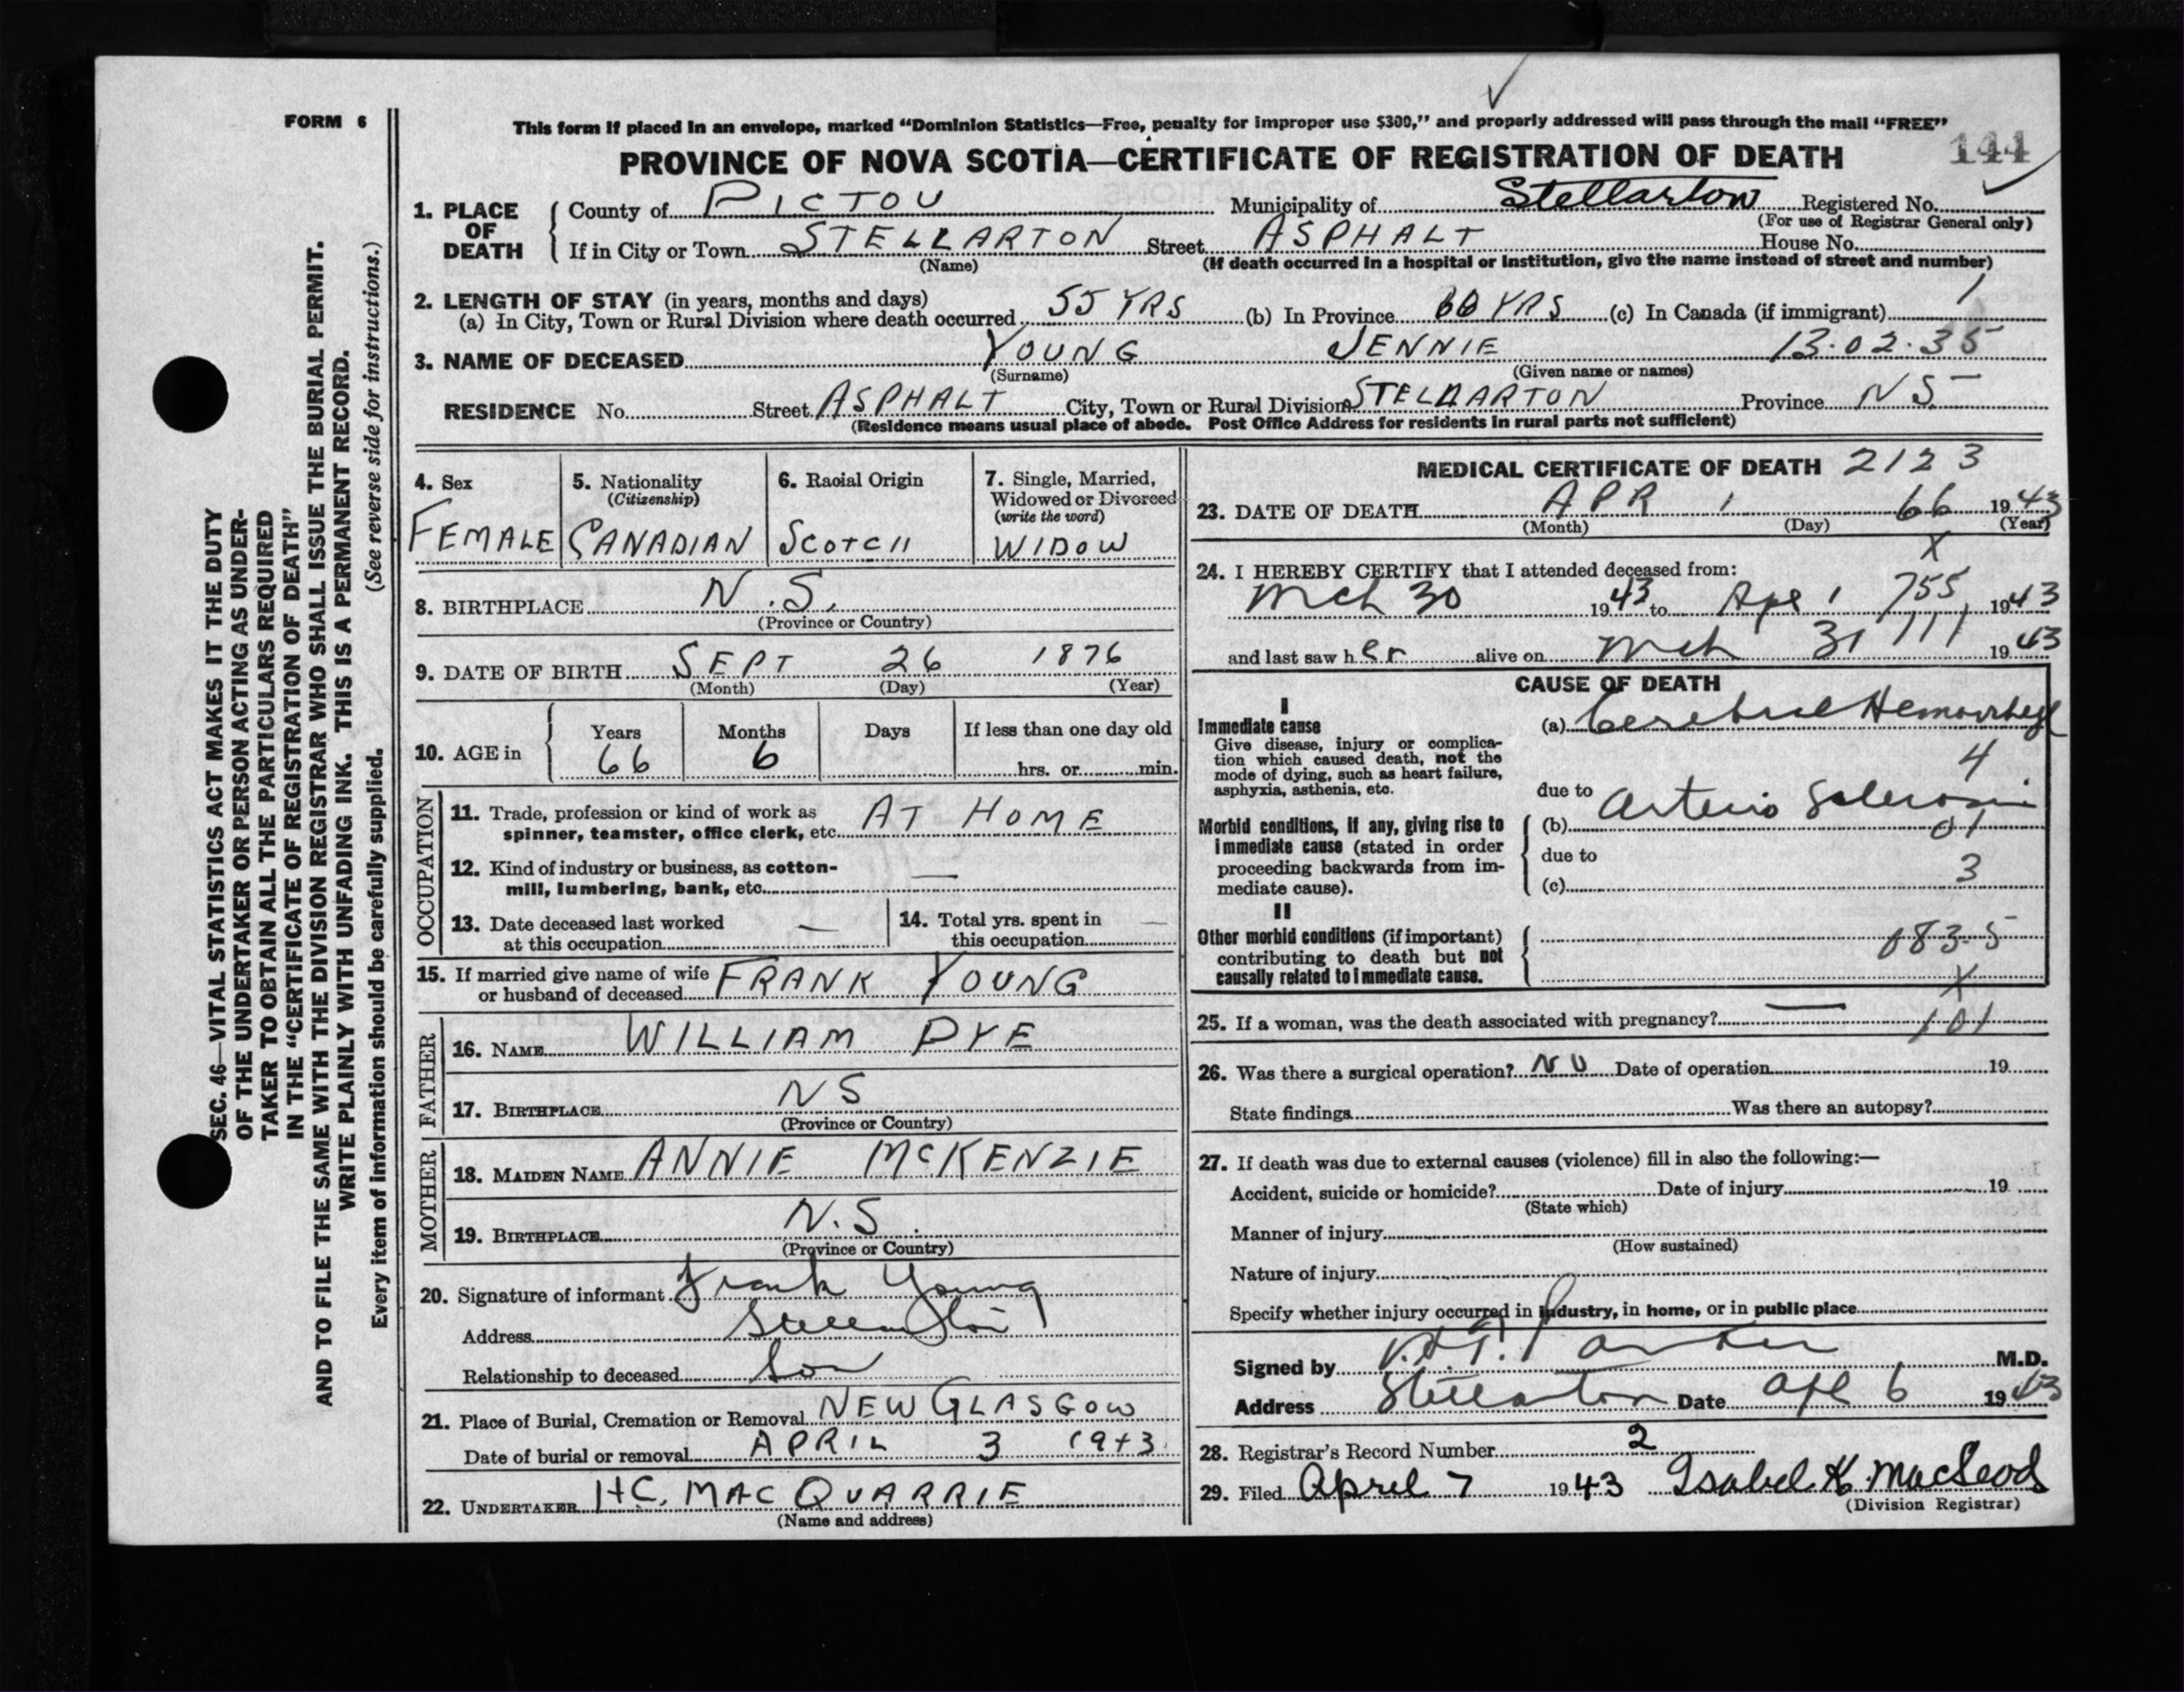 FORM 6
This form if placed in an envelope, marked "Dominion Statistics—Free, penalty for improper use $300," and properly addressed will pass through the mail "FREE"
PROVINCE OF NOVA SCOTIA—CERTIFICATE OF REGISTRATION OF DEATH 144
SEC. 46—VITAL STATISTICS ACT MAKES IT THE DUTY
OF THE UNDERTAKER OR PERSON ACTING AS UNDER-
TAKER TO OBTAIN ALL THE PARTICULARS REQUIRED
IN THE "CERTIFICATE OF REGISTRATION OF DEATH"
AND TO FILE THE SAME WITH THE DIVISION REGISTRAR WHO SHALL ISSUE THE BURIAL PERMIT.
WRITE PLAINLY WITH UNFADING INK. THIS IS A PERMANENT RECORD.
Every item of information should be carefully supplied. (See reverse side for instructions.)
1. PLACE OF DEATH
County of PICTOU Municipality of Stellarton Registered No.
(For use of Registrar General only)
If in City or Town STELLARTON Street ASPHALT House No.
(Name) (If death occurred in a hospital or institution, give the name instead of street and number)
2. LENGTH OF STAY (in years, months and days)
(a) In City, Town or Rural Division where death occurred 55 YRS (b) In Province 66 YRS (c) In Canada (if immigrant) 1
3. NAME OF DECEASED YOUNG JENNIE 13.02.35
(Surname) (Given name or names)
RESIDENCE No. Street ASPHALT City, Town or Rural Division STELLARTON Province N S
(Residence means usual place of abode. Post Office Address for residents in rural parts not sufficient)
4. Sex
FEMALE
5. Nationality
(Citizenship)
CANADIAN
6. Racial Origin
SCOTCH
7. Single, Married,
Widowed or Divorced
(write the word)
WIDOW
8. BIRTHPLACE N.S.
(Province or Country)
9. DATE OF BIRTH SEPT 26 1876
(Month) (Day) (Year)
10. AGE in
Years Months Days If less than one day old
66 6 hrs. or min.
OCCUPATION
11. Trade, profession or kind of work as
spinner, teamster, office clerk, etc. AT HOME
12. Kind of industry or business, as cotton-
mill, lumbering, bank, etc. —
13. Date deceased last worked
at this occupation —
14. Total yrs. spent in
this occupation —
15. If married give name of wife
or husband of deceased FRANK YOUNG
FATHER
16. NAME WILLIAM DYE
17. BIRTHPLACE NS
(Province or Country)
MOTHER
18. MAIDEN NAME ANNIE MCKENZIE
19. BIRTHPLACE N.S.
(Province or Country)
20. Signature of informant Frank Young
Address Stellarton
Relationship to deceased Son
21. Place of Burial, Cremation or Removal NEW GLASGOW
Date of burial or removal APRIL 3 1943
22. UNDERTAKER H.C. MACQUARRIE
(Name and address)
MEDICAL CERTIFICATE OF DEATH 2123
23. DATE OF DEATH APR 1 66 1943
(Month) (Day) (Year)
X
24. I HEREBY CERTIFY that I attended deceased from:
Mch 30 1943 to Apl 1 755 1943
and last saw her alive on Mch 31 111 1943
CAUSE OF DEATH
I
Immediate cause
Give disease, injury or complica-
tion which caused death, not the
mode of dying, such as heart failure,
asphyxia, asthenia, etc.
(a) Cerebral Hemorrhage
4
due to
Morbid conditions, if any, giving rise to
immediate cause (stated in order
proceeding backwards from im-
mediate cause).
(b) Arterio Sclerosis
01
due to
(c) 3
II
Other morbid conditions (if important)
contributing to death but not
causally related to immediate cause.
083-5
X
25. If a woman, was the death associated with pregnancy? — 101
26. Was there a surgical operation? NO Date of operation 19
State findings Was there an autopsy?
27. If death was due to external causes (violence) fill in also the following:—
Accident, suicide or homicide? Date of injury 19
(State which)
Manner of injury
(How sustained)
Nature of injury
Specify whether injury occurred in industry, in home, or in public place
Signed by Parker M.D.
Address Stellarton Date Apl 6 1943
28. Registrar's Record Number 2
29. Filed April 7 1943 Isabel K. MacLeod
(Division Registrar)